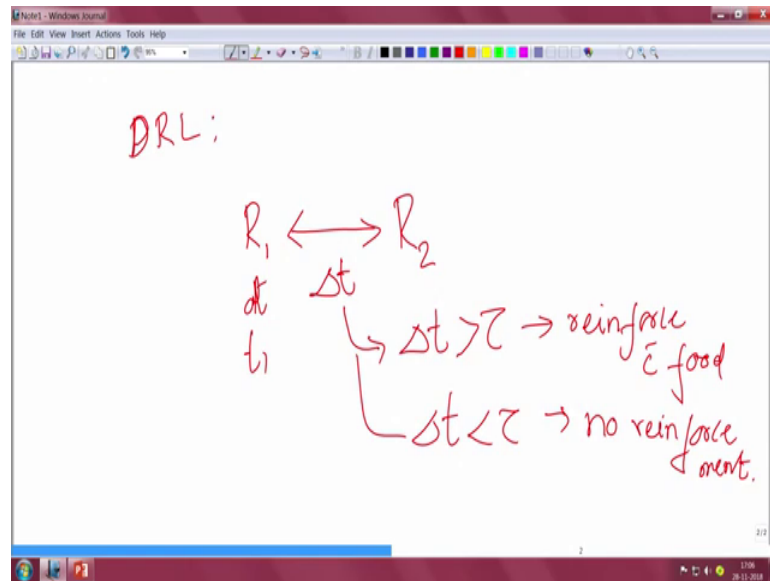 Note1 - Windows Journal
File Edit View Insert Actions Tools Help
90%
DRL:
R₁ ↔ R₂
at Δt
t₁
Δt > τ → reinforce
c̄ food
Δt < τ → no reinforce
ment.
2
2/2
17:06
28-11-2018